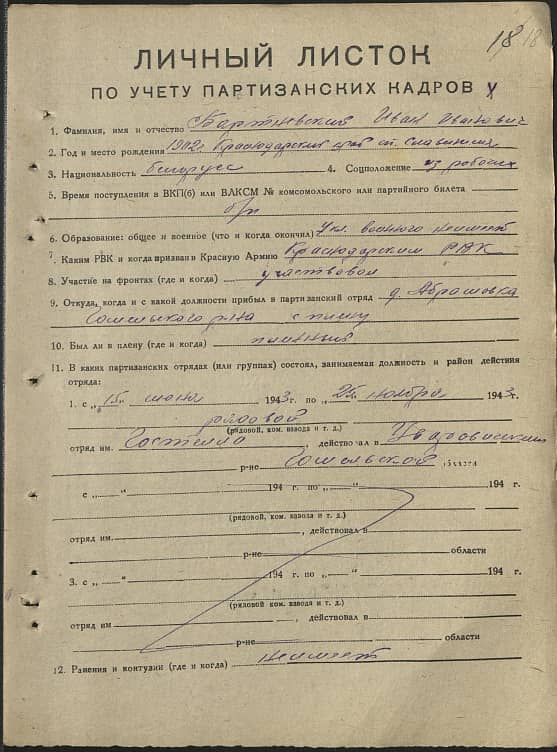 18 18
ЛИЧНЫЙ ЛИСТОК
ПО УЧЕТУ ПАРТИЗАНСКИХ КАДРОВ
1. Фамилия, имя и отчество Иван Иванович
2. Год и место рождения 1902 г. Краснодарский край ст. Славянская
3. Национальность белорусс 4. Соцположение из рабочих
5. Время поступления в ВКП(б) или ВЛКСМ № комсомольского или партийного билета
б/п
6. Образование: общее и военное (что и когда окончил) 4 кл. военного неимеет
7. Каким РВК и когда призван в Красную Армию Краснодарским РВК
8. Участие на фронтах (где и когда) участвовал
9. Откуда, когда и с какой должности прибыл в партизанский отряд д. Абрамовка
Гомельского р-на с плену
10. Был ли в плену (где и когда) пленный
11. В каких партизанских отрядах (или группах) состоял, занимаемая должность и район действия
отряда:
1. с „15" июня 1943 г. по „25" ноября 1943 г.
рядовой
(рядовой, ком. взвода и т. д.)
отряд им. Гостелло, действовал в Уваровичским
р-не Гомельской области
с „ " 194 г. по „ " 194 г.
(рядовой, ком. взвода и т. д.)
отряд им. , действовал в
р-не области
3. с „ " 194 г. по „ " 194 г.
(рядовой, ком. взвода и т. д.)
отряд им. , действовал в
р-не области
12. Ранения и контузии (где и когда) неимеет